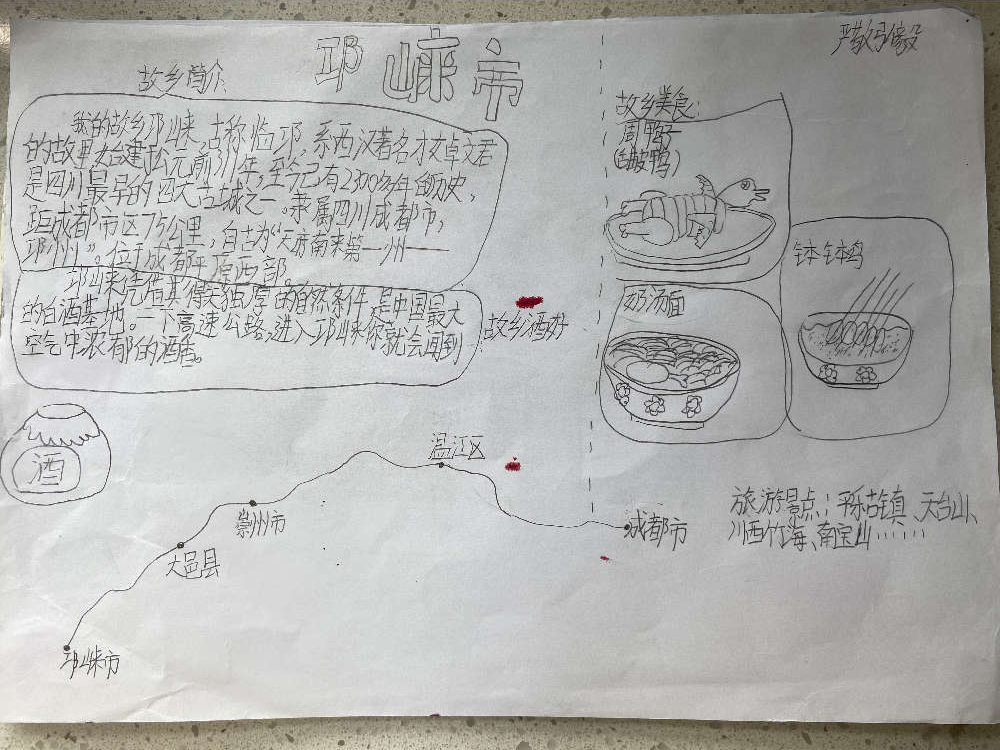 邛崃市
故乡简介
我的故乡邛崃,古称临邛,系西汉著名才女卓文君
的故里,始建于公元前311年,至今已有2300多年的历史,
是四川最早的四大古城之一。隶属四川成都市,
距成都市区75公里,自古为“天府南来第一州——
邛州”。位于成都平原西部。
邛崃凭借其得天独厚的自然条件,是中国最大
的白酒基地。一下高速公路,进入邛崃你就会闻到
空气中浓郁的酒香。
故乡酒好
酒
故乡美食:
周鸭子
奶汤面
钵钵鸡
温江区
崇州市
大邑县
邛崃市
成都市
旅游景点:平乐古镇、天台山、
川西竹海、南宝山……